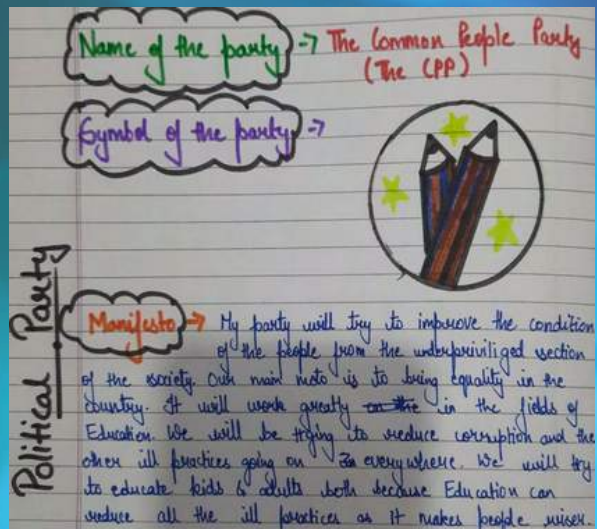 Name of the party → The Common People Party
(The CPP)
Symbol of the party →
Political Party
Manifesto → My party will try to improve the condition
of the people from the underpriviliged section
of the society. Our main moto is to bring equality in the
country. It will work greatly in the fields of
Education. We will be trying to reduce corruption and the
other ill practices going on everywhere. We will try
to educate kids & adults both because Education can
reduce all the ill practices as it makes people wiser.